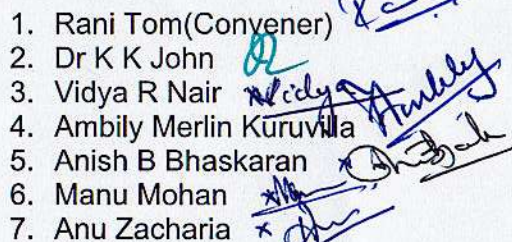 1. Rani Tom(Convener)
2. Dr K K John
3. Vidya R Nair Vidya
4. Ambily Merlin Kuruvilla Ambily
5. Anish B Bhaskaran
6. Manu Mohan
7. Anu Zacharia